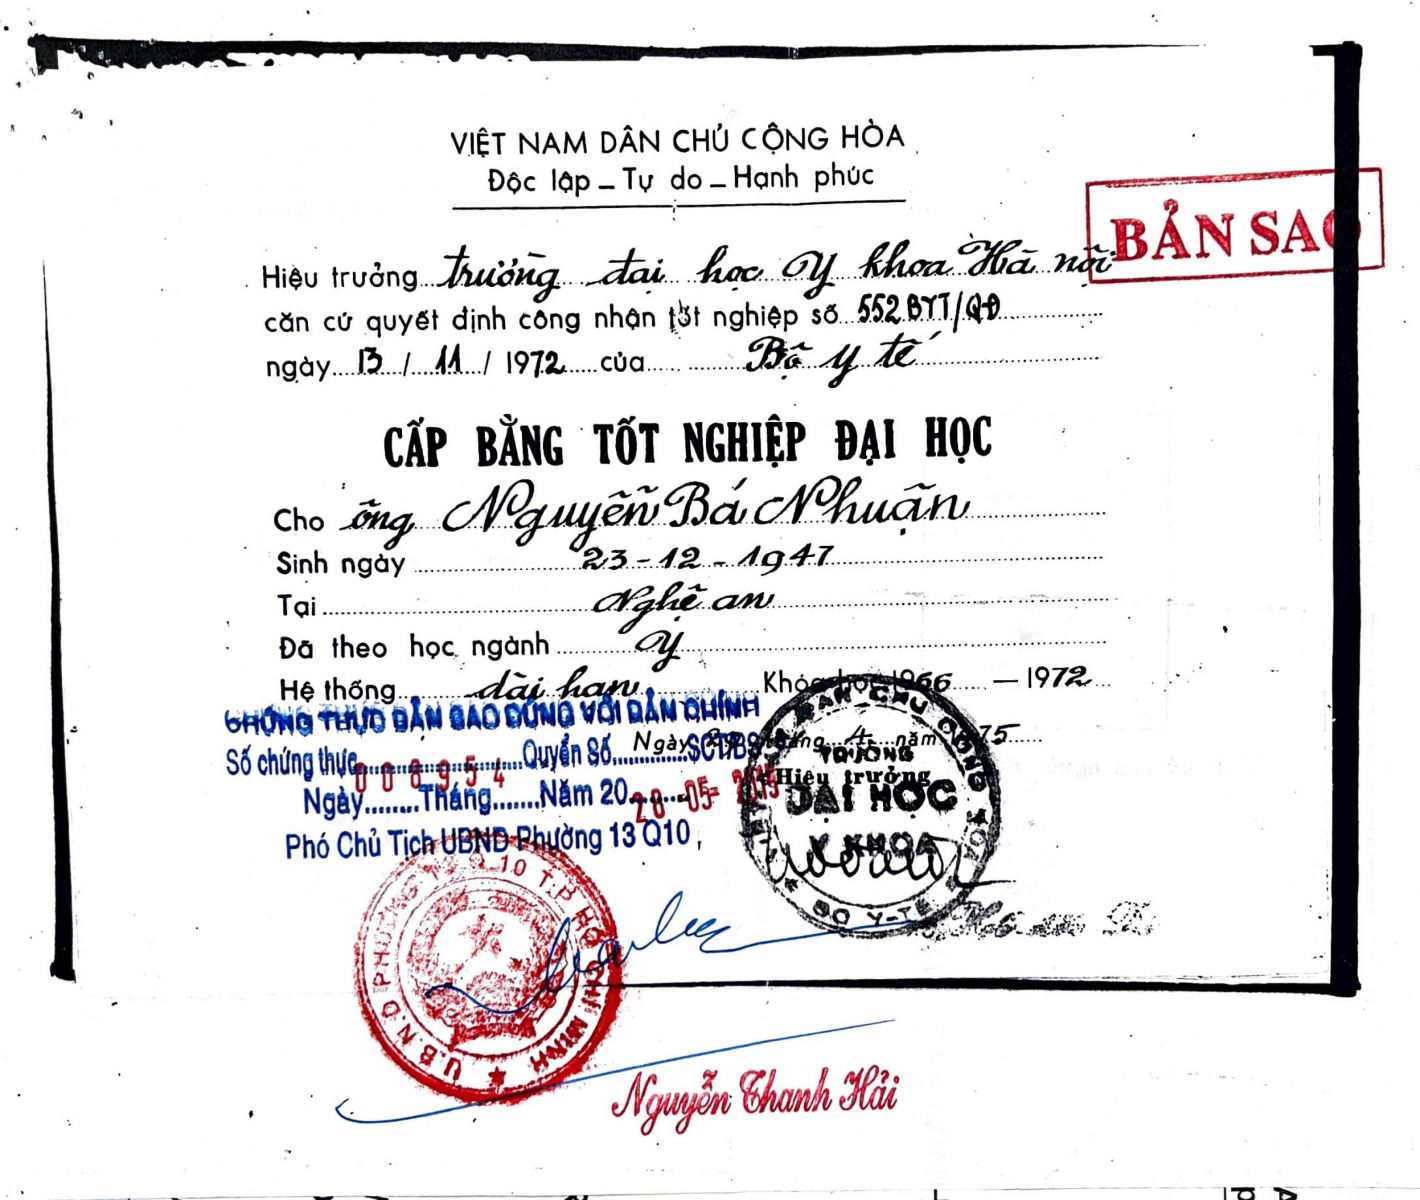 VIỆT NAM DÂN CHỦ CỘNG HÒA
Độc lập - Tự do - Hạnh phúc
BẢN SAO
Hiệu trưởng trường đại học Y khoa Hà nội
căn cứ quyết định công nhận tốt nghiệp số 552 BYT/QĐ
ngày 13 / 11 / 1972 của Bộ y tế
CẤP BẰNG TỐT NGHIỆP ĐẠI HỌC
Cho ông Nguyễn Bá Nhuận
Sinh ngày 23-12-1947
Tại Nghệ an
Đã theo học ngành Y
Hệ thống dài hạn Khóa học 1966 - 1972
CHỨNG THỰC BẢN SAO ĐÚNG VỚI BẢN CHÍNH
Ngày tháng 4 năm 75
Số chứng thực 008954 Quyển Số SCT/BS
Hiệu trưởng
Ngày Tháng Năm 20
28-05-2015
Phó Chủ Tịch UBND Phường 13 Q10
TRƯỜNG
ĐẠI HỌC
Y KHOA
BỘ Y-TẾ
U.B.N.D PHƯỜNG 13 Q.10 T.P HỒ CHÍ MINH
Nguyễn Thanh Hải